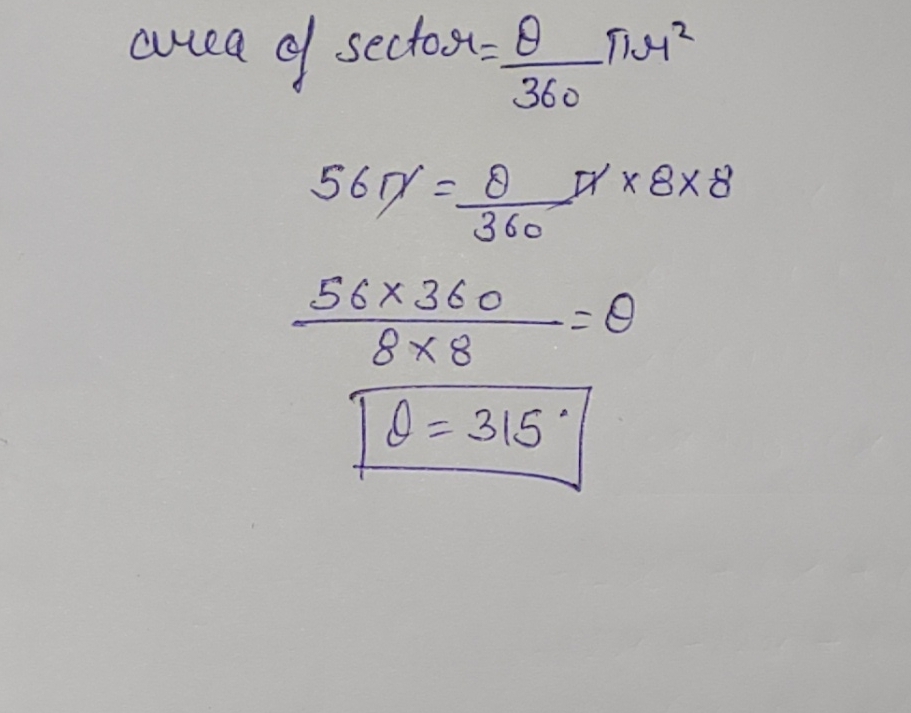 area of sector = θ/360 πr²
56π = θ/360 π × 8 × 8
56 × 360 / 8 × 8 = θ
θ = 315°